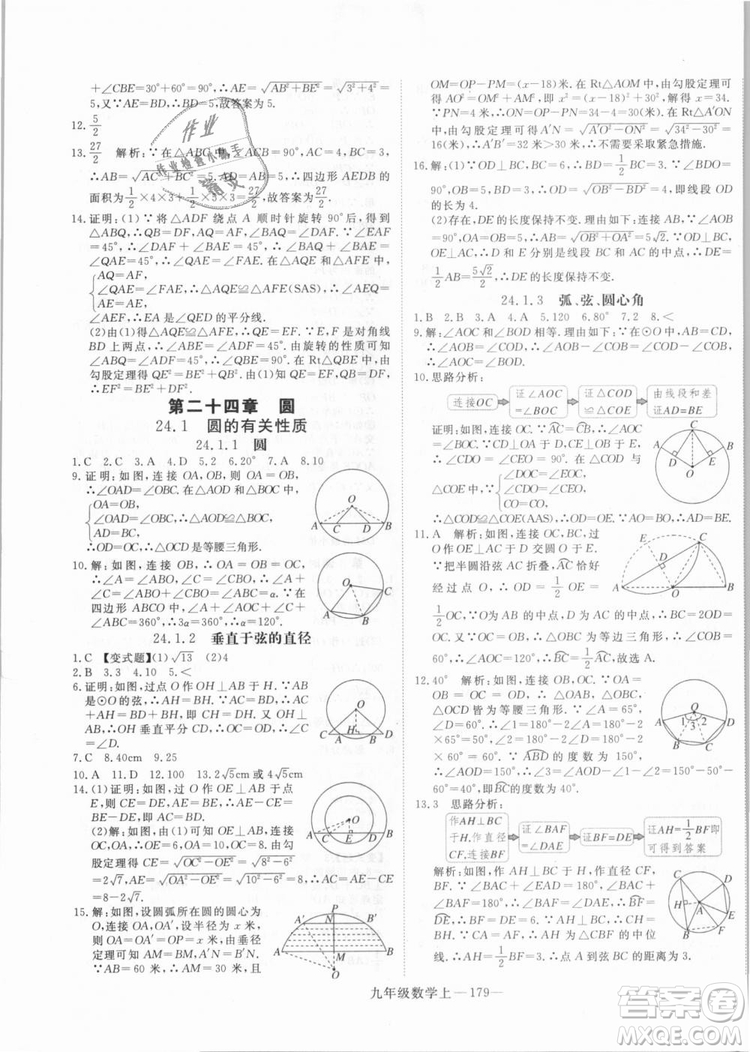 +∠CBE=30°+60°=90°,∴AE=√(AB²+BE²)=√(3²+4²)=
5,又∵AE=BD,∴BD=5.故答案为5.
12.5/2
13.27/2 解析:在△ABC中,
∴AB=√(AC²+BC²)
面积为1/2×4×3+1/2×5×3=27/2,故答案为27/2.
14.证明:(1)∵将△ADF绕点A顺时针旋转90°后,得到
△ABQ,∴QB=DF,AQ=AF,∠BAQ=∠DAF,∵∠EAF
=45°,∴∠DAF+∠BAE=∠QAB+∠BAE=
∠QAE=45°,∴∠QAE=∠FAE.在△AQE和△AFE中
AQ=AF,
∠QAE=∠FAE,∴△AQE≌△AFE(SAS),∴∠AEQ=
AE=AE,
∠AEF,∴EA是∠QED的平分线.
(2)由(1)得△AQE≌△AFE,∴QE=EF,∵BD是对角线
BD,∴∠ADB=∠ABD=45°.由旋转的性质可知
∠ABQ=∠ADF=45°,∴∠QBE=90°.在Rt△QBE中,
QB²+BE²=QE²,又∵QB=DF,
∴EF²=BE²+DF².
第二十四章 圆
24.1 圆的有关性质
24.1.1 圆
1.C 2.C 3.A 4.D 5.2 6.20° 7.A 8.10
9.证明:如图,连接OA,OB.∵OA=OB,
∴∠OAD=∠OBC.在△OAD和△OBC中,
OA=OB,
∠OAD=∠OBC,∴△OAD≌△OBC(SAS),
AD=BC,
∴OD=OC,∴△OCD是等腰三角形.
10.解:如图,连接OA,∵OA=OB=OC,
∴∠A=∠ABO+∠ACO=∠B+∠C=α.在
四边形ABOC中,∵∠A+∠B+∠C+∠BOC
=360°,∴α+α+α=360°,即3α=360°,∴α=120°.
24.1.2 垂直于弦的直径
1.C 【变式题】(1)√13 (2)4
2.B 3.3 4.B 5.<
6.证明:如图,过点O作OH⊥AB于H.∵AB
是⊙O的弦,∴AH=BH.∵AC=BD,∴AH
-AC=BH-BD,即CH=DH,又∵OH⊥
CD,∴OH垂直平分CD,∴OC=OD.
7.C 8.40cm 9.25
10.A 11.D 12.100 13.2√5cm或4√5cm
14.(1)证明:如图,过点O作OE⊥AB于点
E,则CE=DE,AE=BE,∴AE-CE=
BE-DE,即AC=BD.
(2)解:如图,连接OA,OC,由(1)可知
OE⊥AB且OE⊥CD,OE=6,由勾股定
理可得CE=√(OC²-OE²)=√(8²-6²)
=2√7,AE=√(OA²-OE²)=√(10²-6²)=8,∴AC=AE-
CE=8-2√7.
15.解:如图,设圆弧所在圆的圆心为O,
连接OA、OA′,设半径为x米,
则OA=OA′=OP=x(米).由垂径
定理可知AM=BM,A′N=B′N.
∵AB=60米,∴AM=30米,且
OM=OP-PM=(x-18)米.在Rt△AOM中,由勾股定理可
得AO²=OM²+AM²,即x²=(x-18)²+30².解得x=34.
∵PN=4米,∴ON=OP-PN=34-4=30(米).在Rt△A′ON
中,由勾股定理可得A′N=√(OA′²-ON²)=√(34²-30²)=
16(米),∴A′B′=32米>30米,∴不需要采取紧急措施.
16.解:(1)∵OD⊥BC,∴BD=1/2BC=1/2×6=3.∵∠BDO=
90°,OB=5,BD=3,∴OD=√(OB²-BD²)=4,即线段OD的
长度为4.
(2)存在,DE的长度保持不变.理由:连接AB,∵∠AOB=
90°,OA=OB=5,∴AB=√(OB²+OA²)=5√2.∵OD⊥BC,
OE⊥AC,∴D和E分别是线段BC和AC的中点,∴DE=
1/2AB=5√2/2,∴DE的长度保持不变.
24.1.3 弧、弦、圆心角
1.D 2.A 3.40° 4.A 5.120 6.80° 7.A 8.>
9.解:∠AOC和∠BOD相等.理由如下:∵在⊙O中,AB=
CD,∴∠AOB=∠COD,∴∠AOB-∠COB=∠COD-
∠COB,∴∠AOC=∠BOD.
10.思路分析:
连接OC 证∠AOC=∠BOC 证△COD≌△COE 由线段和差证AD=BE
证明:如图,连接OC.∵AC=BC,
∴∠AOC=∠BOC.∵CD⊥OA于D,
CE⊥OB于E,∴∠CDO=∠CEO=
90°.在△COD与△COE中,
∠DOC=∠EOC,
∠CDO=∠CEO,
CO=CO,
∴△COD≌△COE(AAS),∴OD=OE,∵AO=BO,∴AD
=BE.
11.A 解析:如图,连接OC,BC,过O作
OE⊥AC于D交圆O于E,∵
把半圆沿弦AC折叠,AC恰好
经过点O,∴OD=1/2OE=
1/2OC.∵D为AC的中点,O为AB的中点,∴BC=2OD=
OC,∵OB=OC,∴OB=OC=BC,∴△BOC是等边三角形,
∴∠BOC=60°,∴∠AOC=120°,∴BC=1/2AC.故选A.
12.40° 解析:如图,连接OC,OD.∵∠BAO
=∠CBO=α=65°,△ABO,△BCO,
△OCD皆为等腰三角形,∴∠ABO=
∠BAO=65°,∠BCO=∠CBO=65°,
∴∠1=180°-2∠BAO=180°-2
×65°=50°,∠2=180°-2∠CBO=180°-2
×65°=50°.∵BD=AB,∴∠3=∠1=
50°,∴∠4=180°
13.3 思路分析:
作AH⊥BC于H,作直径CF,连接BF 证∠BAF=∠DAE 证BF=DE 证AH=1/2BF即可得到答案
解析:如图,作AH⊥BC于H,作直径CF,连
接BF.∵∠BAC+∠EAD=180°,而∠BAC
+∠BAF=180°,∴∠DAE=∠BAF,∴DE
=BF,∴DE=BF=6.∵AH⊥BC,∴CH=
BH,∵CA=AF,∴AH为△CBF的中位
线,∴AH=1/2BF=3.
九年级数学上—179—